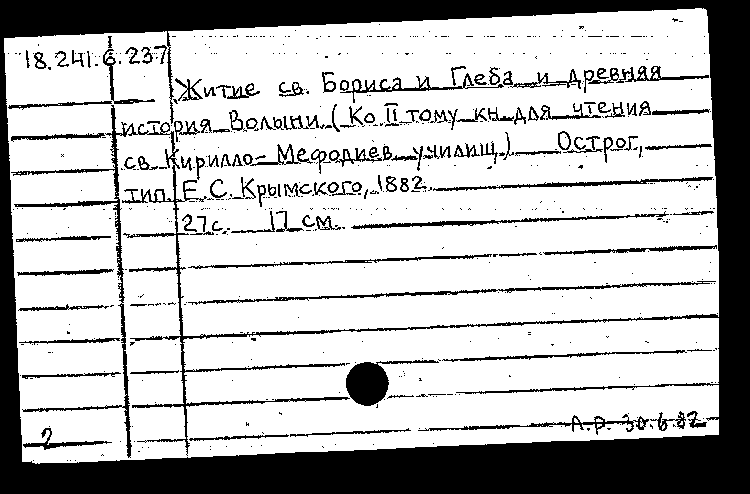 18.241.6.237
Житие св. Бориса и Глеба и древняя
история Волыни (Ко II тому кн. для чтения
св. Кирилло-Мефодиев. училищ.) Острог,
тип. Е.С. Крымского, 1882.
27с. 17 см.
2
А.Р. 30.6.82